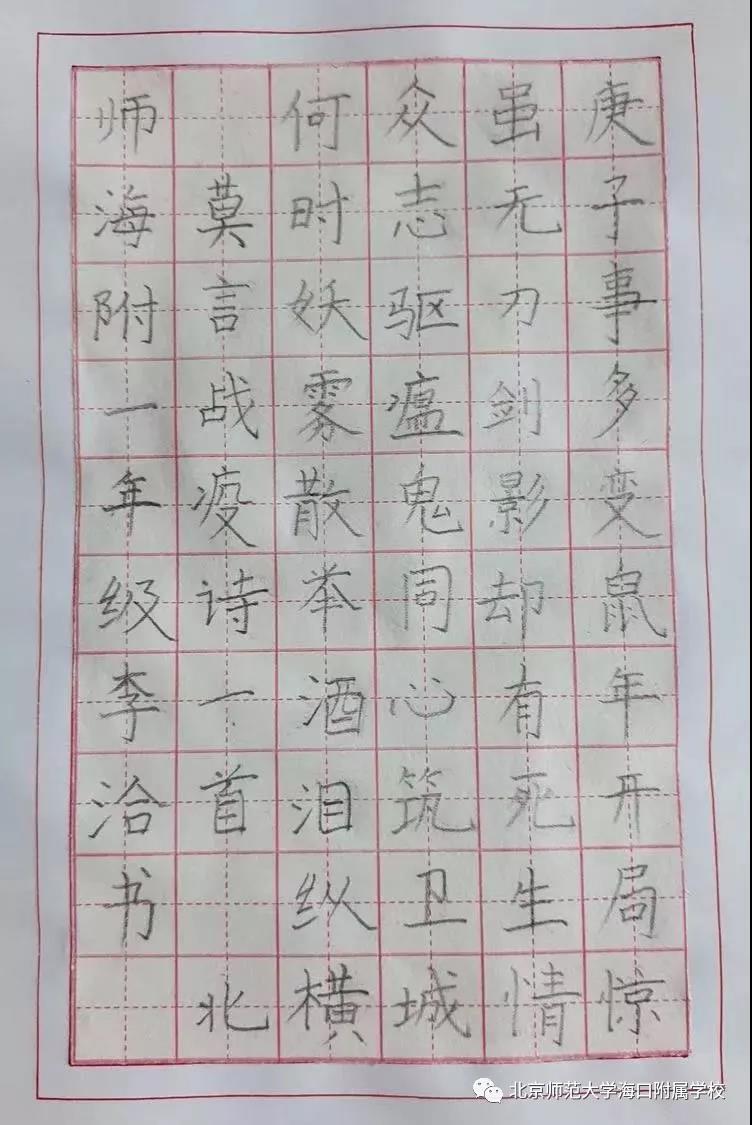 庚子事多变鼠年开局惊
虽无刀剑影却有死生情
众志驱瘟鬼同心筑卫城
何时妖雾散举酒泪纵横
莫言战疫诗一首 北
师海附一年级李洽书
北京师范大学海口附属学校